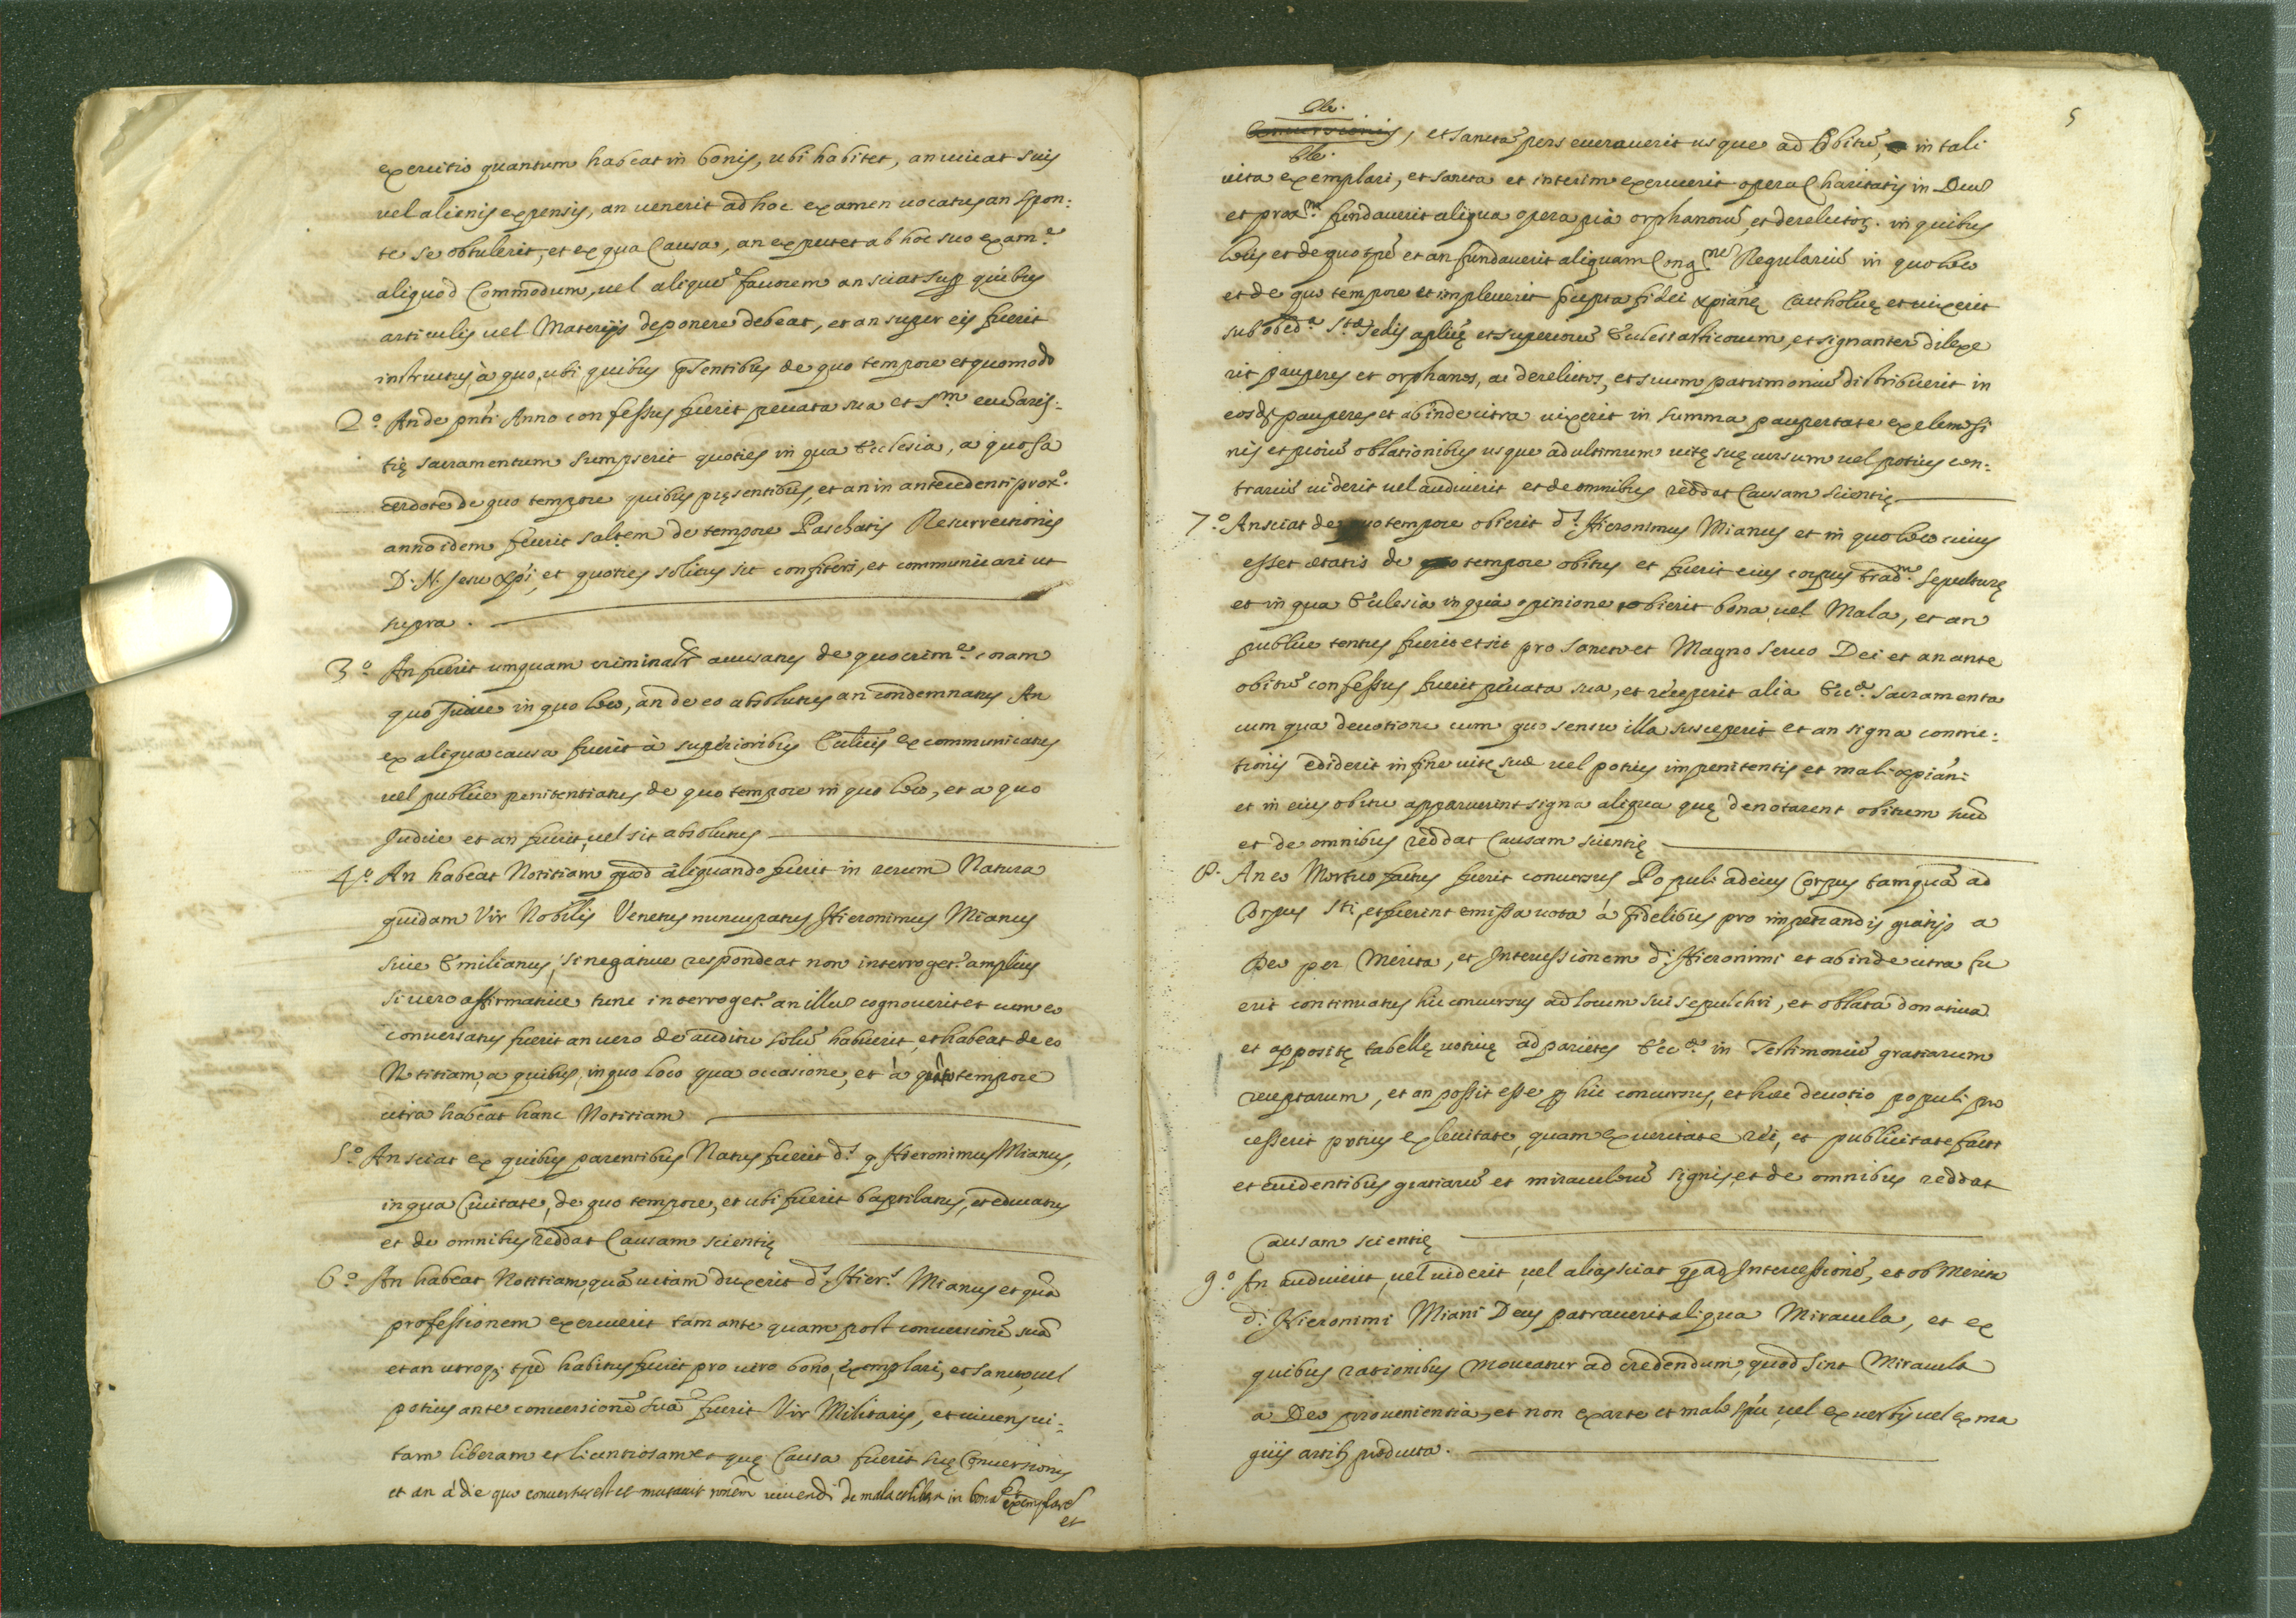 exercitio quantum habeat in bonis, ubi habitet, an uiuat suis
uel alienis expensis, an uenerit ad hoc examen uocatus an spon:
te se obtulerit, et ex qua Causa, an expectet ab hoc suo exam.e
aliquod Commodum, uel aliquẽ fauorem an sciat sup quibus
articulis uel Materijs deponere debeat, et an super eis fuerit
instructus à quo, ubi quibus p̃sentibus de quo tempore et quomodo
2.o An de pñti Anno confessus fuerit peccata sua et S.m eucharis:
tię sacramentum sumpserit quoties in qua Ecclesia, a quo sa
cerdote de quo tempore quibus pręsentibus, et an in antecedenti prox.o
anno idem fecerit saltem de tempore Paschatis Resurrectionis
D. N. Jesu Xp̃i, et quoties solitus sit confiteri, et communicari ut
supra.
3.o An fuerit unquam criminalr̃ accusatus de quo crim.e coram
quo Judice in quo loco, an de eo absolutus an condemnatus An
ex aliqua causa fuerit à superioribus Ecclicis excommunicatus
uel publice penitentiatus de quo tempore in quo loco, et a quo
Judice et an fuerit, uel sit absolutus
4.o An habeat Notitiam quod aliquando fuerit in rerum Natura
quidam Vir Nobilis Venetus nuncupatus Hieronimus Mianus
siue Emilianus, si negatiue respondeat non interroget.r amplius
si uero affirmatiue tunc interroget.r an illũ cognouerit et cum eo
conuersatus fuerit an uero de auditu solũ habuerit, et habeat de eo
Notitiam, a quibus, in quo loco qua occasione, et à quo tempore
citra habeat hanc Notitiam
5.o An sciat ex quibus parentibus Natus fuerit d.s q Hieronimus Mianus,
in qua Ciuitate, de quo tempore, et ubi fuerit baptizatus, et educatus
et de omnibus reddat Causam scientię
6.o An habeat Notitiam, quã uitam duxerit d.s Hier.s Mianus et quã
professionem exercuerit tam ante quam post conuersionẽ suã
et an utroq; tp̃e habitus fuerit pro uiro bono, exemplari, et sancto, uel
potius ante conuersionẽ suã fuerit Vir Militaris, et uiuens ui:
tam liberam et licentiosam et quę Causa fuerit suę Conuersionis
et an à die quo conuersus est et mutauit uiuendi de mala in bonã exemplarẽ
et
5
Conuersionis, et sanctã perseuerauerit usque ad Obitũ, in tali
uita exemplari, et sancta et interim exercuerit opera Charitatis in Deũ
et prox.m fundauerit aliqua opera pia orphanorũ, et derelictoꝝ. in quibus
locis et de quo tp̃e et an fundauerit aliquam Cong.ne Regulariũ in quo loco
et de quo tempore et impleuerit p̃cepta fidei xpianę Catholicę et uixerit
sub obed.a S.tę Sedis aplicę et superiorũ Ecclesiasticorum, et signanter dilexe
rit pauperes et orphanos, ac derelictos, et suum patrimoniũ distribuerit in
eosd. pauperes et ab inde citra uixerit in summa paupertate ex elemosi
nis et piorũ oblationibus usque ad ultimum uitę suę cursum uel potius con:
trariũ uiderit uel audiuerit et de omnibus reddat Causam scientię
7.o An sciat de quo tempore obierit d.s Hieronimus Mianus et in quo loco cuius
esset etatis de tempore obitus et fuerit eius corpus trad.m sepulturę
et in qua Ecclesia in qua opinione obierit bona, uel Mala, et an
publice tentus fuerit et sit pro sancto et Magno seruo Dei et an ante
obitũ confessus fuerit peccata sua, et receperit alia Ecc.ę sacramenta
cum qua deuotione cum quo sensu illa susceperit et an signa contric:
tionis ediderit in fine uitę suę uel potius impenitentis et mali xpiani
et in eius obitu apparuerint signa aliqua quę denotarent obitum
et de omnibus reddat Causam scientię
8. An eo Mortuo factus fuerit concursus Populi ad eius Corpus tamquã ad
Corpus Sti, et fuerint emissa uota à fidelibus pro impetrandis gratijs a
Deo per Merita, et Intercessionem d.i Hieronimi et ab inde citra fu
erit continuatus hic concursus ad locum sui sepulchri, et oblata donatiua
et appositę tabellę uotiuę ad parietes Ecc.ę in Testimoniũ gratiarum
receptarum, et an possit esse q hic concursus, et hęc deuotio populi pro
cesserit potius ex leuitate, quam ex ueritate rei, et publicitate facti
et euidentibus gratiarũ et miraculorũ signis, et de omnibus reddat
Causam scientię
9.o An audiuerit, uel uiderit uel alias sciat q ad Intercessionẽ, et ob Merita
d.i Hieronimi Miani Deus patrauerit aliqua Miracula, et ex
quibus rationibus moueatur ad credendum, quod sint Miracula
a Deo prouenientia, et non ex arte et malo sp̃u, uel ex uerbis uel ex ma
gicis artib; producta.